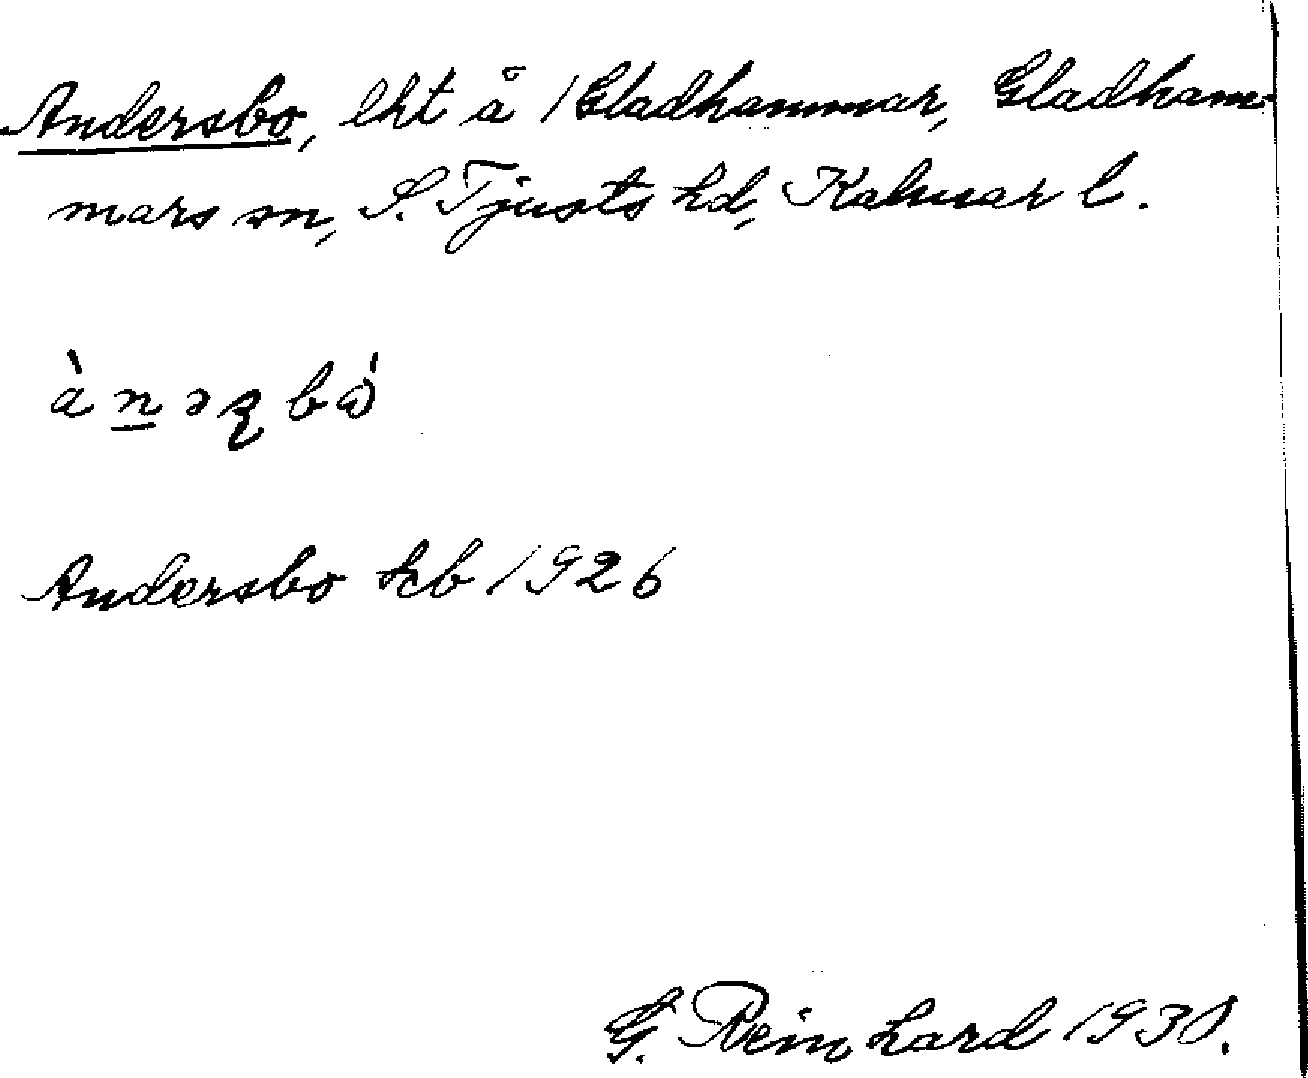 Andersbo, lht å 1 Gladhammar, Gladham-
mars sn, S. Tjusts hd, Kalmar l.
Andersbo kb 1926
G. Reinhard 1938.